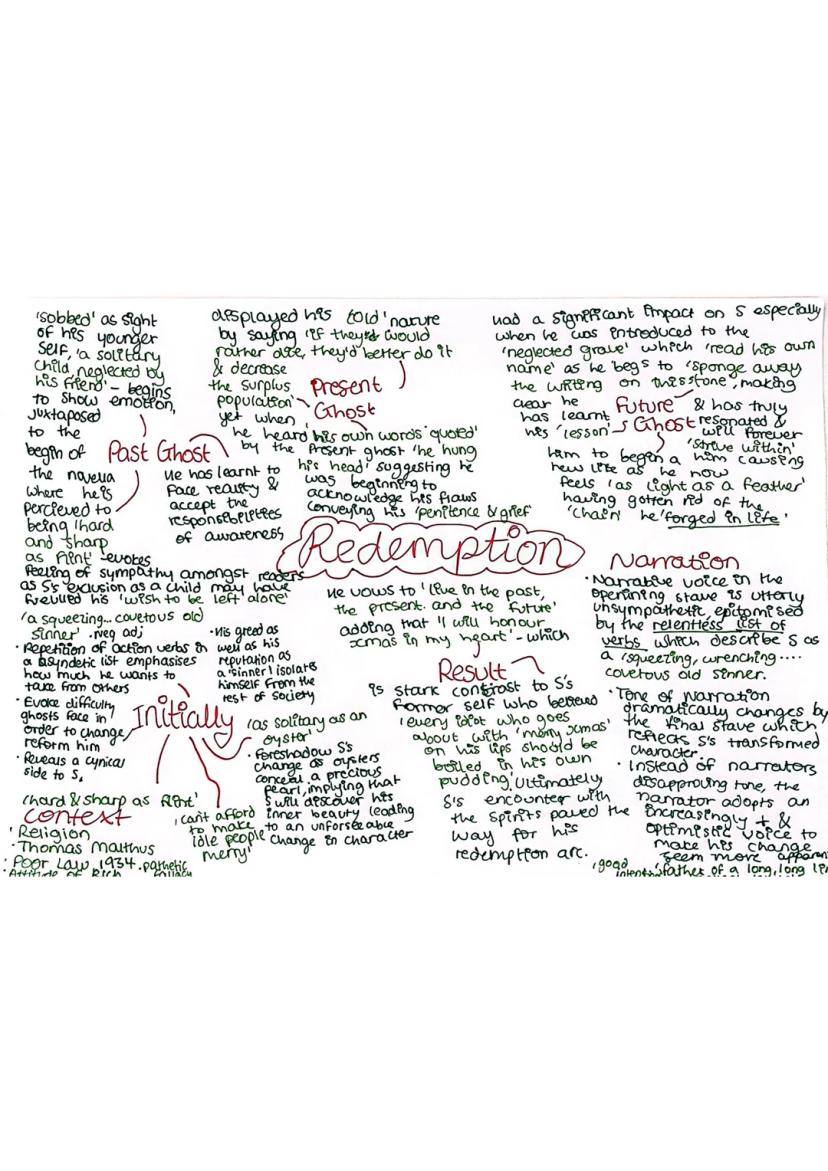 'sobbed' as sight
of his younger
self, 'a solitary
child, neglected by
his friend' - begins
to show emotion,
juxtaposed
to the
begin of
the novella
where he is
percieved to
being 'hard
and sharp
as flint' - evokes
feeling of sympathy amongst readers
as S's exclusion as a child may have
fuelled his 'wish to be left alone'
Past Ghost
He has learnt to
face reality &
accept the
responsibilities
of awareness
displayed his 'cold' nature
by saying 'if they'd would
rather die, they'd better do it
& decrease
the surplus
population'
yet when
Present
Ghost
he heard 'his own words quoted'
by the present ghost 'he hung
his head' suggesting he
was beginning to
acknowledge his flaws
conveying his 'penitence & grief'
had a significant impact on S especially
when he was introduced to the
'neglected grave' which 'read his own
name' as he begs to 'sponge away
the writing on this stone', making
clear he
has learnt
his 'lesson'
Future
Ghost
& has truly
resonated &
will forever
'strive within'
him to begin a him causing
new life as he now
feels 'as light as a feather'
having gotten rid of the
'chain' he 'forged in life'
Redemption
'a squeezing... covetous old
sinner' · neg adj
· Repetition of action verbs in
a asyndetic list emphasises
how much he wants to
take from others
· Evoke difficulty
ghosts face in
order to change/
reform him
· Reveals a cynical
side to S.
· His greed as
well as his
reputation as
a 'sinner' isolates
himself from the
rest of society
Initially
'as solitary as an
oyster'
· foreshadow S's
change as oysters
conceal a precious
pearl, implying that
S will discover his
inner beauty leading
to an unforseeable
change in character
'hard & sharp as flint'
'can't afford
to make
idle people
merry'
Context
· Religion
· Thomas Malthus
· Poor Law, 1934
· pathetic
fallacy
· Attitude of Rich
He vows to 'live in the past,
the present and the future'
adding that 'I will honour
xmas in my heart' - which
Result
is stark contrast to S's
former self who believed
'every idiot who goes
about with 'merry xmas'
on his lips should be
boiled in his own
pudding'. Ultimately
S's encounter with
the spirits paved the
way for his
redemption arc.
Narration
· Narrative voice in the
opening stave is utterly
unsympathetic, epitomised
by the relentless list of
verbs which describe S as
a 'squeezing, wrenching ....
covetous old sinner.
· Tone of narration
dramatically changes by
the final stave which
reflects S's transformed
character.
· Instead of narrators
disapproving tone, the
narrator adopts an
increasingly + &
optimistic voice to
make his change
seem more
'good
'father of a long, long